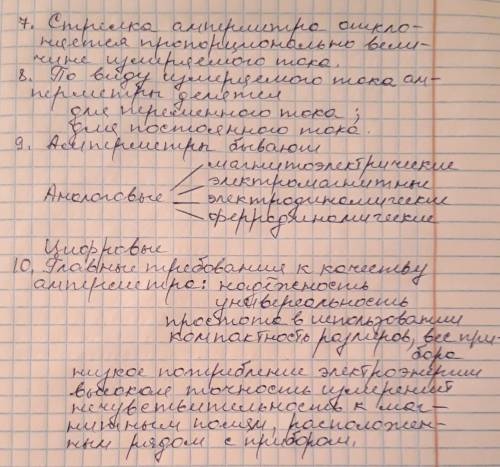 7. Стрелка амперметра откло-
няется пропорционально вели-
чине измеряемого тока.
8. По виду измеряемого тока ам-
перметры делятся
для переменного тока;
для постоянного тока.
9. Амперметры бывают
магнитоэлектрические
электромагнитные
Аналоговые электродинамические
ферродинамические
Цифровые
10. Главные требования к качеству
амперметра: надёжность
универсальность
простота в использовании
компактность размеров, вес при-
бора
низкое потребление электроэнергии
высокая точность измерений
нечувствительность к маг-
нитным полям, расположен-
ным рядом с прибором.